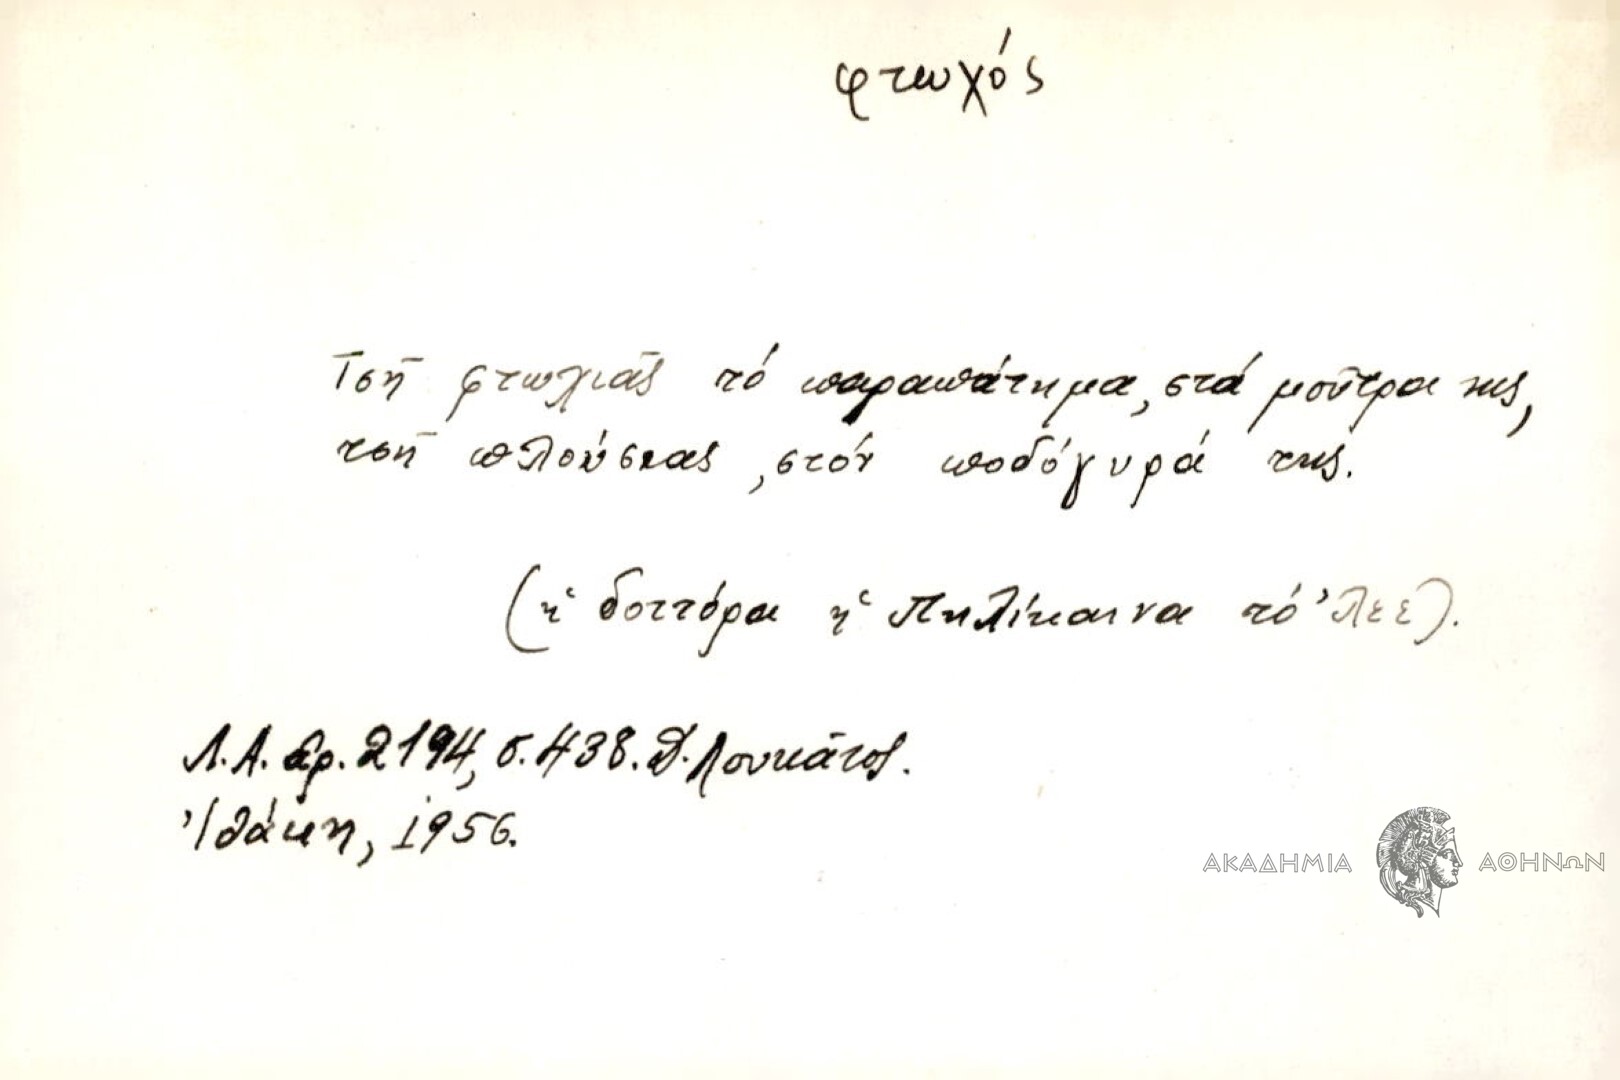 φτωχός
Τσῆ φτωχιᾶς τό παραπάτημα, στά μοῦτρα της,
τσῆ πλούσιας, στόν ποδόγυρά της.
(ἡ δοττόρα ἡ Πηλίκαινα τό 'λεε).
Λ.Α. ἀρ. 2194, σ. 438. Δ. Λουκᾶτος.
Ἰθάκη, 1956.
ΑΚΑΔΗΜΙΑ ΑΘΗΝΩΝ